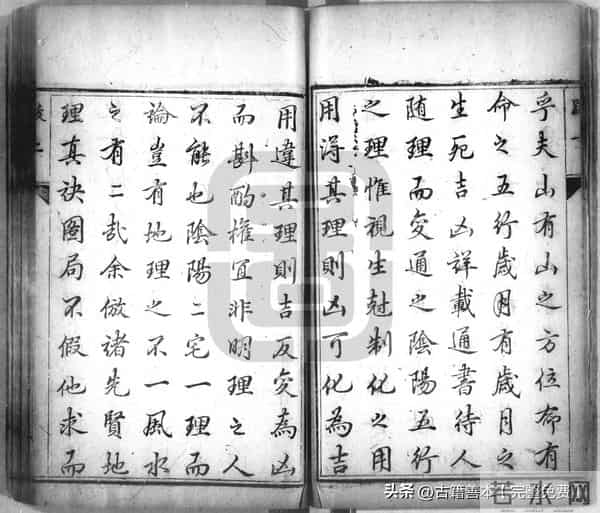 乎夫山有山之方位命有
命之五行歲月有歲月之
生死吉凶詳載通書待人
随理而变通之陰陽五行
之理惟視生尅制化之用
用得其理則凶可化為吉
用違其理則吉反变為凶
而斟酌權宜非明理之人
不能也陰陽二宅一理而
論豈有地理之不一風水
之有二哉余倣諸先賢地
理真訣圖局不假他求而
头条 @古籍善本 完整免费